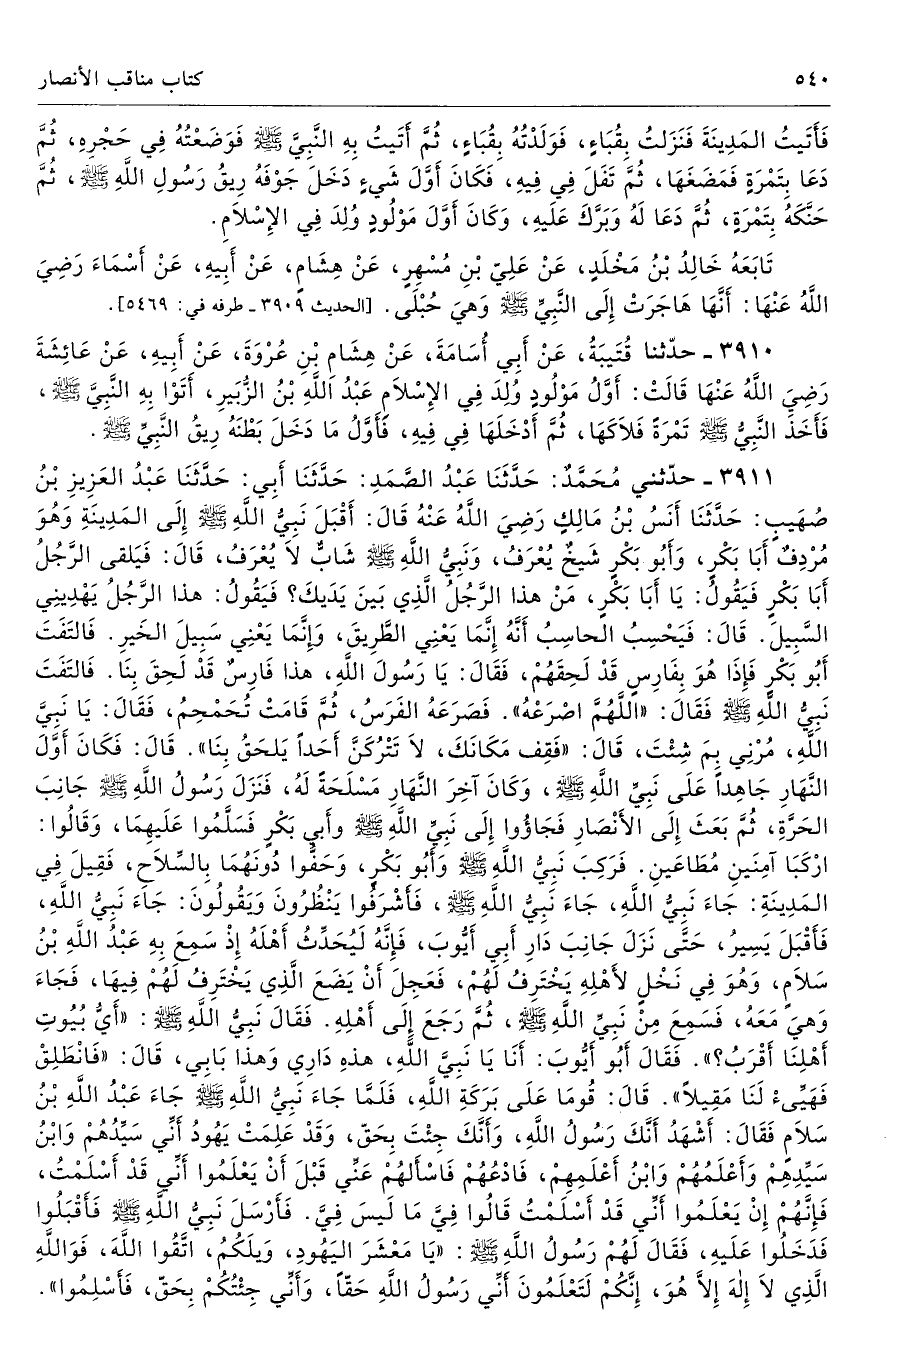 ٥٤٠ كتاب مناقب الأنصار
فَأَتَيتُ المَدِينَةَ فَنَزَلتُ بِقُبَاءٍ، فَوَلَدْتُهُ بِقُبَاءٍ، ثُمَّ أَتَيتُ بِهِ النَّبِيَّ ﷺ فَوَضَعْتُهُ فِي حَجْرِهِ، ثُمَّ
دَعَا بِتَمْرَةٍ فَمَضَغَهَا، ثُمَّ تَفَلَ فِي فِيهِ، فَكَانَ أَوَّلَ شَيءٍ دَخَلَ جَوْفَهُ رِيقُ رَسُولِ اللَّهِ ﷺ، ثُمَّ
حَنَّكَهُ بِتَمْرَةٍ، ثُمَّ دَعَا لَهُ وَبَرَّكَ عَلَيهِ، وَكَانَ أَوَّلَ مَوْلُودٍ وُلِدَ فِي الإِسْلاَمِ.
تَابَعَهُ خَالِدُ بْنُ مَخْلَدٍ، عَنْ عَلِيِّ بْنِ مُسْهِرٍ، عَنْ هِشَامٍ، عَنْ أَبِيهِ، عَنْ أَسْمَاءَ رَضِيَ
اللَّهُ عَنْهَا: أَنَّهَا هَاجَرَتْ إِلَى النَّبِيِّ ﷺ وَهِيَ حُبْلَى. [الحديث ٣٩٠٩ ـ طرفه في: ٥٤٦٩].
٣٩١٠ ـ حدّثنا قُتَيبَةُ، عَنْ أَبِي أُسَامَةَ، عَنْ هِشَامِ بْنِ عُرْوَةَ، عَنْ أَبِيهِ، عَنْ عَائِشَةَ
رَضِيَ اللَّهُ عَنْهَا قَالَتْ: أَوَّلُ مَوْلُودٍ وُلِدَ فِي الإِسْلاَمِ عَبْدُ اللَّهِ بْنُ الزُّبَيرِ، أَتَوْا بِهِ النَّبِيَّ ﷺ،
فَأَخَذَ النَّبِيُّ ﷺ تَمْرَةً فَلاَكَهَا، ثُمَّ أَدْخَلَهَا فِي فِيهِ، فَأَوَّلُ مَا دَخَلَ بَطْنَهُ رِيقُ النَّبِيِّ ﷺ.
٣٩١١ ـ حدّثني مُحَمَّدٌ: حَدَّثَنَا عَبْدُ الصَّمَدِ: حَدَّثَنَا أَبِي: حَدَّثَنَا عَبْدُ العَزِيزِ بْنُ
صُهَيبٍ: حَدَّثَنَا أَنَسُ بْنُ مَالِكٍ رَضِيَ اللَّهُ عَنْهُ قَالَ: أَقْبَلَ نَبِيُّ اللَّهِ ﷺ إِلَى المَدِينَةِ وَهُوَ
مُرْدِفٌ أَبَا بَكْرٍ، وَأَبُو بَكْرٍ شَيخٌ يُعْرَفُ، وَنَبِيُّ اللَّهِ ﷺ شَابٌّ لاَ يُعْرَفُ، قَالَ: فَيَلقى الرَّجُلُ
أَبَا بَكْرٍ فَيَقُولُ: يَا أَبَا بَكْرٍ، مَنْ هذا الرَّجُلُ الَّذِي بَينَ يَدَيكَ؟ فَيَقُولُ: هذا الرَّجُلُ يَهْدِينِي
السَّبِيلَ. قَالَ: فَيَحْسِبُ الحاسِبُ أَنَّهُ إِنَّمَا يَعْنِي الطَّرِيقَ، وَإِنَّمَا يَعْنِي سَبِيلَ الخَيرِ. فَالتَفَتَ
أَبُو بَكْرٍ فَإِذَا هُوَ بِفَارِسٍ قَدْ لَحِقَهُمْ، فَقَالَ: يَا رَسُولَ اللَّهِ، هذا فَارِسٌ قَدْ لَحِقَ بِنَا. فَالتَفَتَ
نَبِيُّ اللَّهِ ﷺ فَقَالَ: «اللَّهُمَّ اصْرَعْهُ». فَصَرَعَهُ الفَرَسُ، ثُمَّ قَامَتْ تُحَمْحِمُ، فَقَالَ: يَا نَبِيَّ
اللَّهِ، مُرْنِي بِمَ شِئْتَ، قَالَ: «فَقِف مَكَانَكَ، لاَ تَتْرُكَنَّ أَحَداً يَلحَقُ بِنَا». قَالَ: فَكَانَ أَوَّلَ
النَّهَارِ جَاهِداً عَلَى نَبِيِّ اللَّهِ ﷺ، وَكَانَ آخِرَ النَّهَارِ مَسْلَحَةً لَهُ، فَنَزَلَ رَسُولُ اللَّهِ ﷺ جَانِبَ
الحَرَّةِ، ثُمَّ بَعَثَ إِلَى الأَنْصَارِ فَجَاؤُوا إِلَى نَبِيِّ اللَّهِ ﷺ وأَبِي بَكْرٍ فَسَلَّمُوا عَلَيهِمَا، وَقَالُوا:
ارْكَبَا آمِنَينِ مُطَاعَينِ. فَرَكِبَ نَبِيُّ اللَّهِ ﷺ وَأَبُو بَكْرٍ، وَحَفُّوا دُونَهُمَا بِالسِّلاَحِ، فَقِيلَ فِي
المَدِينَةِ: جَاءَ نَبِيُّ اللَّهِ، جَاءَ نَبِيُّ اللَّهِ ﷺ، فَأَشْرَفُوا يَنْظُرُونَ وَيَقُولُونَ: جَاءَ نَبِيُّ اللَّهِ،
فَأَقْبَلَ يَسِيرُ، حَتَّى نَزَلَ جَانِبَ دَارِ أَبِي أَيُّوبَ، فَإِنَّهُ لَيُحَدِّثُ أَهْلَهُ إِذْ سَمِعَ بِهِ عَبْدُ اللَّهِ بْنُ
سَلاَمٍ، وَهُوَ فِي نَخْلٍ لأَهْلِهِ يَخْتَرِفُ لَهُمْ، فَعَجِلَ أَنْ يَضَعَ الَّذِي يَخْتَرِفُ لَهُمْ فِيهَا، فَجَاءَ
وَهِيَ مَعَهُ، فَسَمِعَ مِنْ نَبِيِّ اللَّهِ ﷺ، ثُمَّ رَجَعَ إِلَى أَهْلِهِ. فَقَالَ نَبِيُّ اللَّهِ ﷺ: «أَيُّ بُيُوتِ
أَهْلِنَا أَقْرَبُ؟». فَقَالَ أَبُو أَيُّوبَ: أَنَا يَا نَبِيَّ اللَّهِ، هذهِ دَارِي وَهذا بَابِي، قَالَ: «فَانْطَلِقْ
فَهَيِّىءْ لَنَا مَقِيلاً». قَالَ: قُومَا عَلَى بَرَكَةِ اللَّهِ، فَلَمَّا جَاءَ نَبِيُّ اللَّهِ ﷺ جَاءَ عَبْدُ اللَّهِ بْنُ
سَلاَمٍ فَقَالَ: أَشْهَدُ أَنَّكَ رَسُولُ اللَّهِ، وَأَنَّكَ جِئْتَ بِحَقّ، وَقَدْ عَلِمَتْ يَهُودُ أَنِّي سَيِّدُهُمْ وَابْنُ
سَيِّدِهِمْ وَأَعْلَمُهُمْ وَابْنُ أَعْلَمِهِمْ، فَادْعُهُمْ فَاسْأَلهُمْ عَنِّي قَبْلَ أَنْ يَعْلَمُوا أَنِّي قَدْ أَسْلَمْتُ،
فَإِنَّهُمْ إِنْ يَعْلَمُوا أَنِّي قَدْ أَسْلَمْتُ قَالُوا فِيَّ مَا لَيسَ فِيَّ. فَأَرْسَلَ نَبِيُّ اللَّهِ ﷺ فَأَقْبَلُوا
فَدَخَلُوا عَلَيهِ، فَقَالَ لَهُمْ رَسُولُ اللَّهِ ﷺ: «يَا مَعْشَرَ اليَهُودِ، وَيلَكُمُ، اتَّقُوا اللَّهَ، فَوَاللَّهِ
الَّذِي لاَ إِلٰهَ إِلاَّ هُوَ، إِنَّكُمْ لَتَعْلَمُونَ أَنِّي رَسُولُ اللَّهِ حَقّاً، وَأَنِّي جِئْتُكُمْ بِحَقّ، فَأَسْلِمُوا».